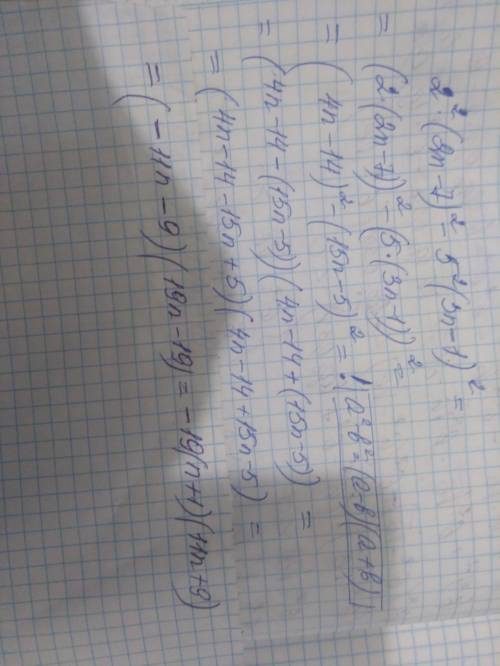 2²·(2n-7)² - 5²(3n-1)² =
= (2·(2n-7))² - (5·(3n-1))² =
= (4n-14)² - (15n-5)² = ! a²-b²=(a-b)(a+b)
= (4n-14-(15n-5))(4n-14+(15n-5)) =
= (4n-14-15n+5)(4n-14+15n-5) =
= (-11n-9)(19n-19) = -19(n+1)(11n+9)